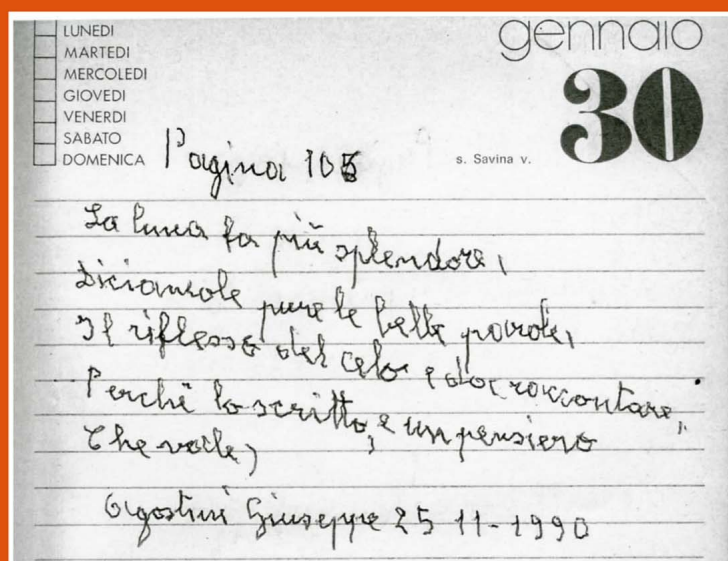 LUNEDI
MARTEDI
MERCOLEDI
GIOVEDI
VENERDI
SABATO
DOMENICA
gennaio
30
s. Savina v.
Pagina 105
La luna fa più splendore,
Diciamole pure le belle parole,
Il riflesso del celo e da raccontare,
Perchè lo scritto, e un pensiero
Che vale,
Agostini Giuseppe 25 11-1990